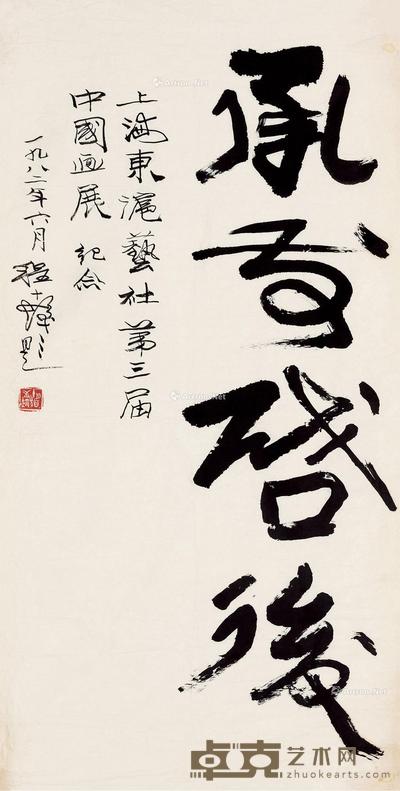 承前啓後
上海東滬藝社第三届
中國画展 紀念
一九八二年六月 程十髮題
卓克艺术网
zhuokearts.com
Artron.Net